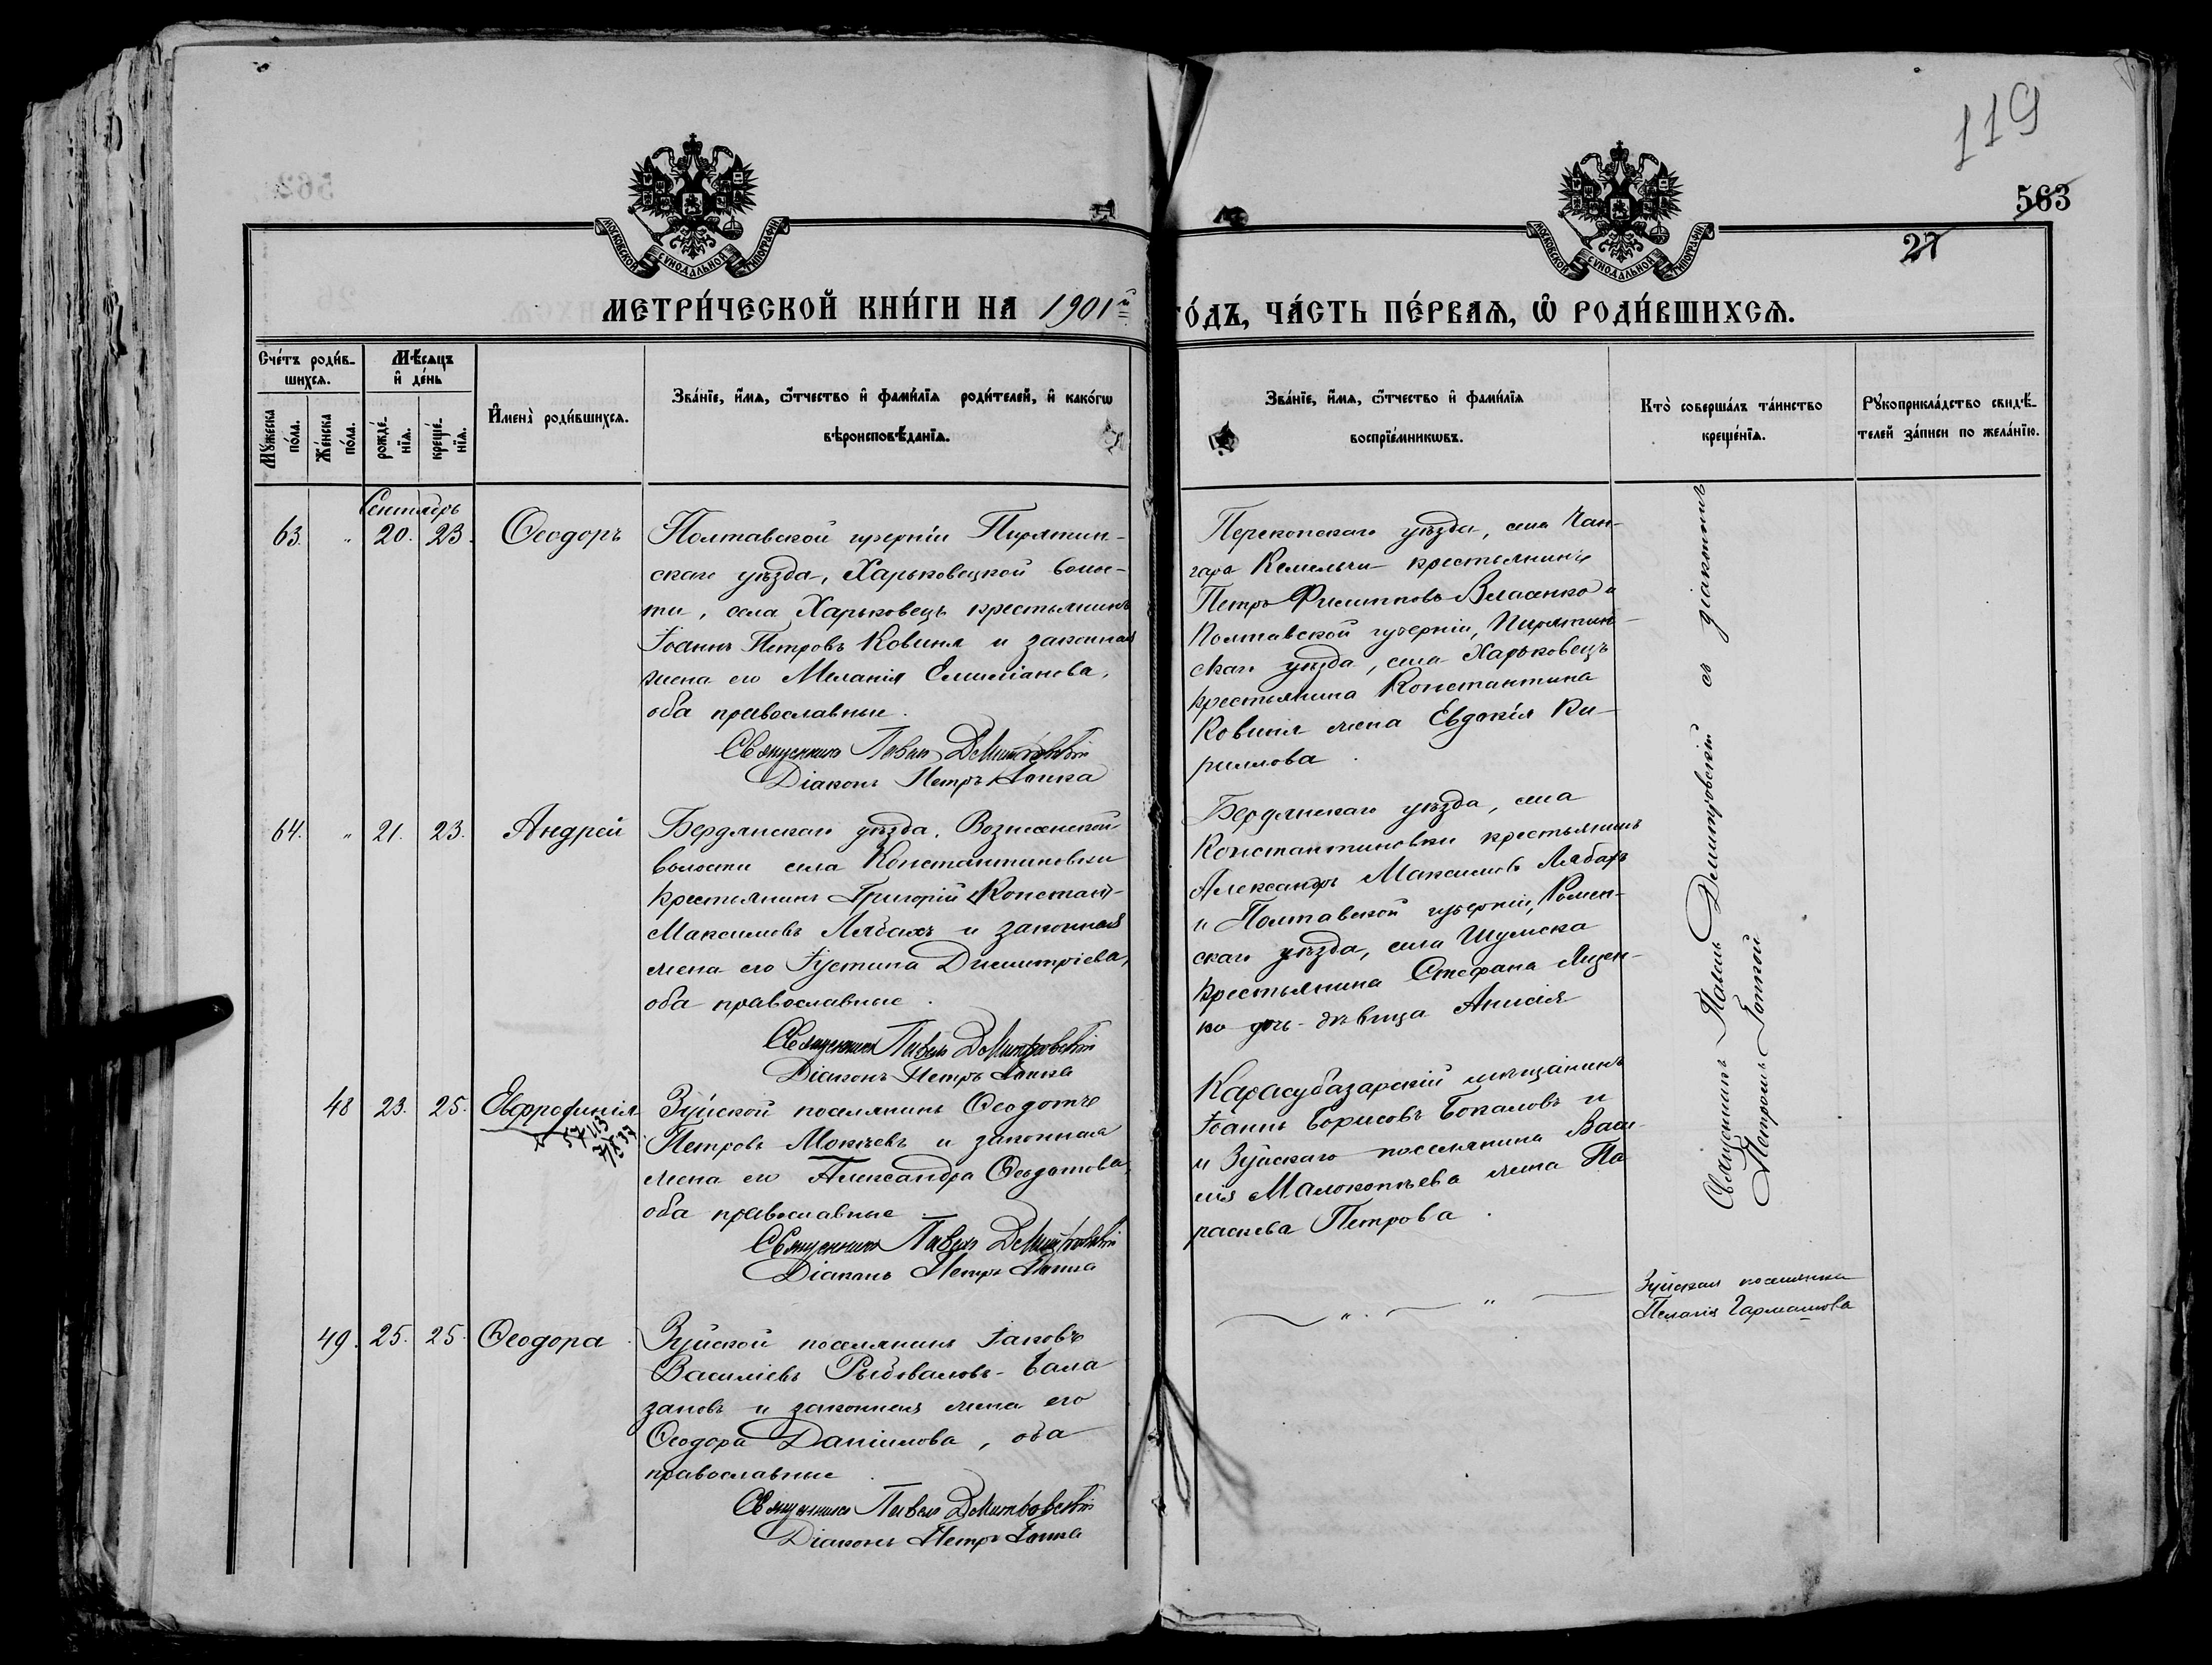 119
563
27
МОСКОВСКОЙ СУНОДАЛЬНОЙ ТИПОГРАФІИ
МОСКОВСКОЙ СУНОДАЛЬНОЙ ТИПОГРАФІИ
МЕТРИ́ЧЕСКОЙ КНИ́ГИ НА 1901й
ГО́ДЪ, ЧА́СТЬ ПЕ́РВАѦ, Ѽ РОДИ́ВШИХСѦ.
Сче́тъ роди́в-
шихсѧ.
Мѣ́сѧцъ
и҆ де́нь
Мꙋ́жеска
по́ла.
Же́нска
по́ла.
рожде́-
нїѧ.
креще́-
нїѧ.
И҆мена̀ роди́вшихсѧ.
Зва́нїе, и҆́мѧ, ѻ҆́тчество и҆ фами́лїѧ роди́телей, и҆ како́гѡ
вѣроисповѣ́данїѧ.
Зва́нїе, и҆́мѧ, ѻ҆́тчество и҆ фами́лїѧ
воспрїе́мникѡвъ.
Кто̀ соверша́лъ та́инство
креще́нїѧ.
Рꙋкоприкла́дство свидѣ́-
телей за́писи по жела́нїю.
Сентябрь
63. " 20. 23. Ѳеодоръ
Полтавской губерніи Пирятин-
скаго уѣзда, Харьковецкой волос-
ти, села Харьковецъ крестьянинъ
Іоаннъ Петровъ Ковиня и законная
жена его Меланія Емиліанова,
оба православные.
Священникъ Павелъ Демитровскій
Діаконъ Петръ Гопка
Перекопскаго уѣзда, села Чан-
гара Кемельчи крестьянинъ
Петръ Филипповъ Власенко и
Полтавской губерніи, Пирятин-
скаго уѣзда, села Харьковецъ
крестьянина Константина
Ковиня жена Евдокія Ки-
риллова.
64. " 21. 23. Андрей
Бердянскаго уѣзда, Вознесенской
волости села Константиновки
крестьянинъ Григорій Констант-
Максимовъ Лябахъ и законная
жена его Іустина Димитріева,
оба православные.
Священникъ Павелъ Демитровскій
Діаконъ Петръ Гопка
Бердянскаго уѣзда, села
Константиновки крестьянинъ
Александръ Максимовъ Лябахъ
и Полтавской губерніи, Ромен-
скаго уѣзда, села Шумска
крестьянина Стефана Яцен-
ко дочь-дѣвица Анисія
48 23. 25. Евфросинія
Зуйской поселянинъ Ѳеодотъ
Петровъ Мокѣевъ и законная
жена его Александра Ѳеодотова,
оба православные.
Священникъ Павелъ Демитровскій
Діаконъ Петръ Гопка
Карасубазарскій мѣщанинъ
Іоаннъ Борисовъ Бокаловъ и
и Зуйскаго поселянина Васи-
лія Малокопѣева жена Па
раскева Петрова.
49. 25. 25. Ѳеодора
Зуйской поселянинъ Іаковъ
Василіевъ Рыбоваловъ-Бала
зановъ и законная жена его
Ѳеодора Даніилова, оба
православные.
Священникъ Павелъ Демитровскій
Діаконъ Петръ Гопка
" "
Священникъ Павелъ Демитровскій съ діакономъ
Петромъ Гопкой
Зуйская поселянка
Пелагія Гармашова